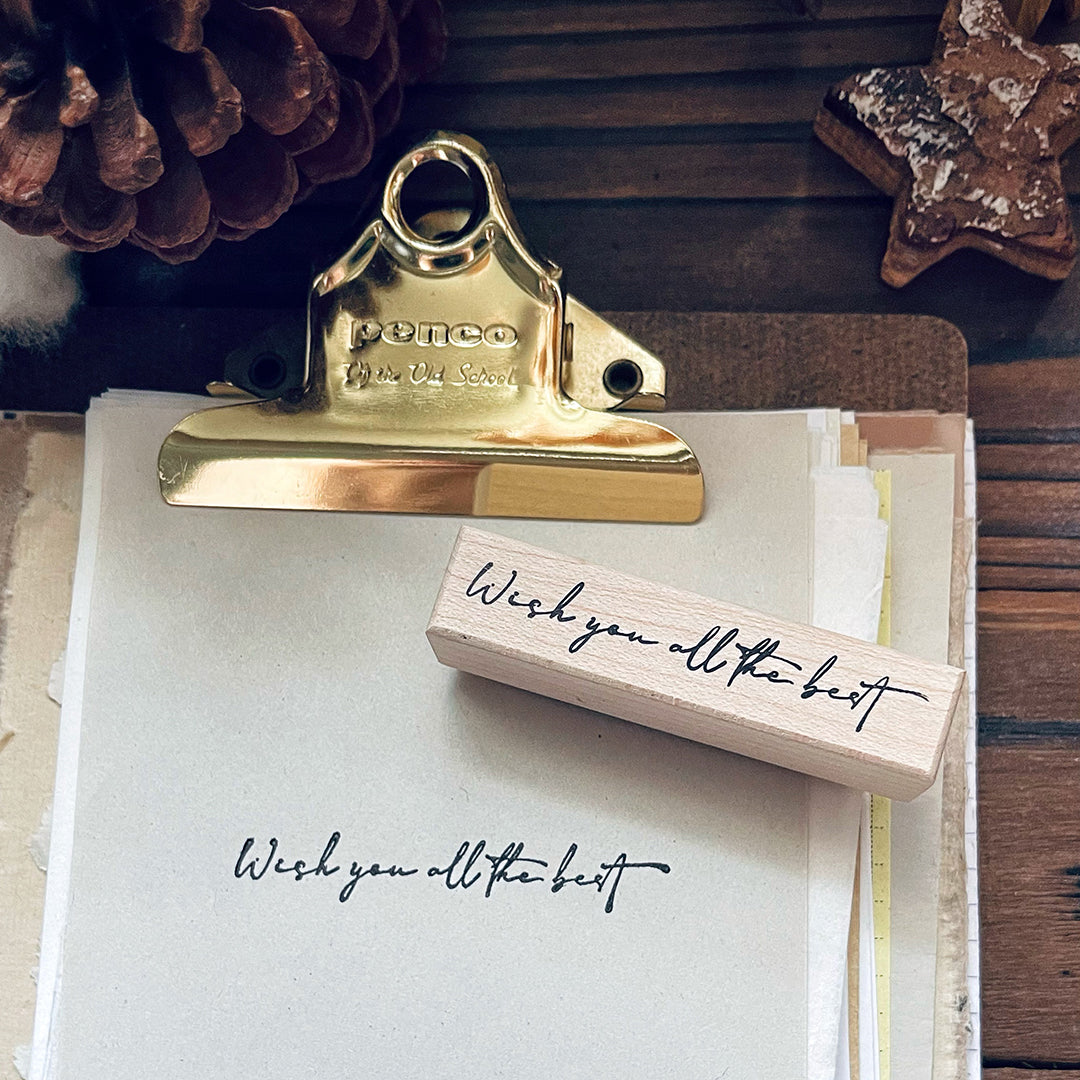 penco
Of the Old School
Wish you all the best
Wish you all the best